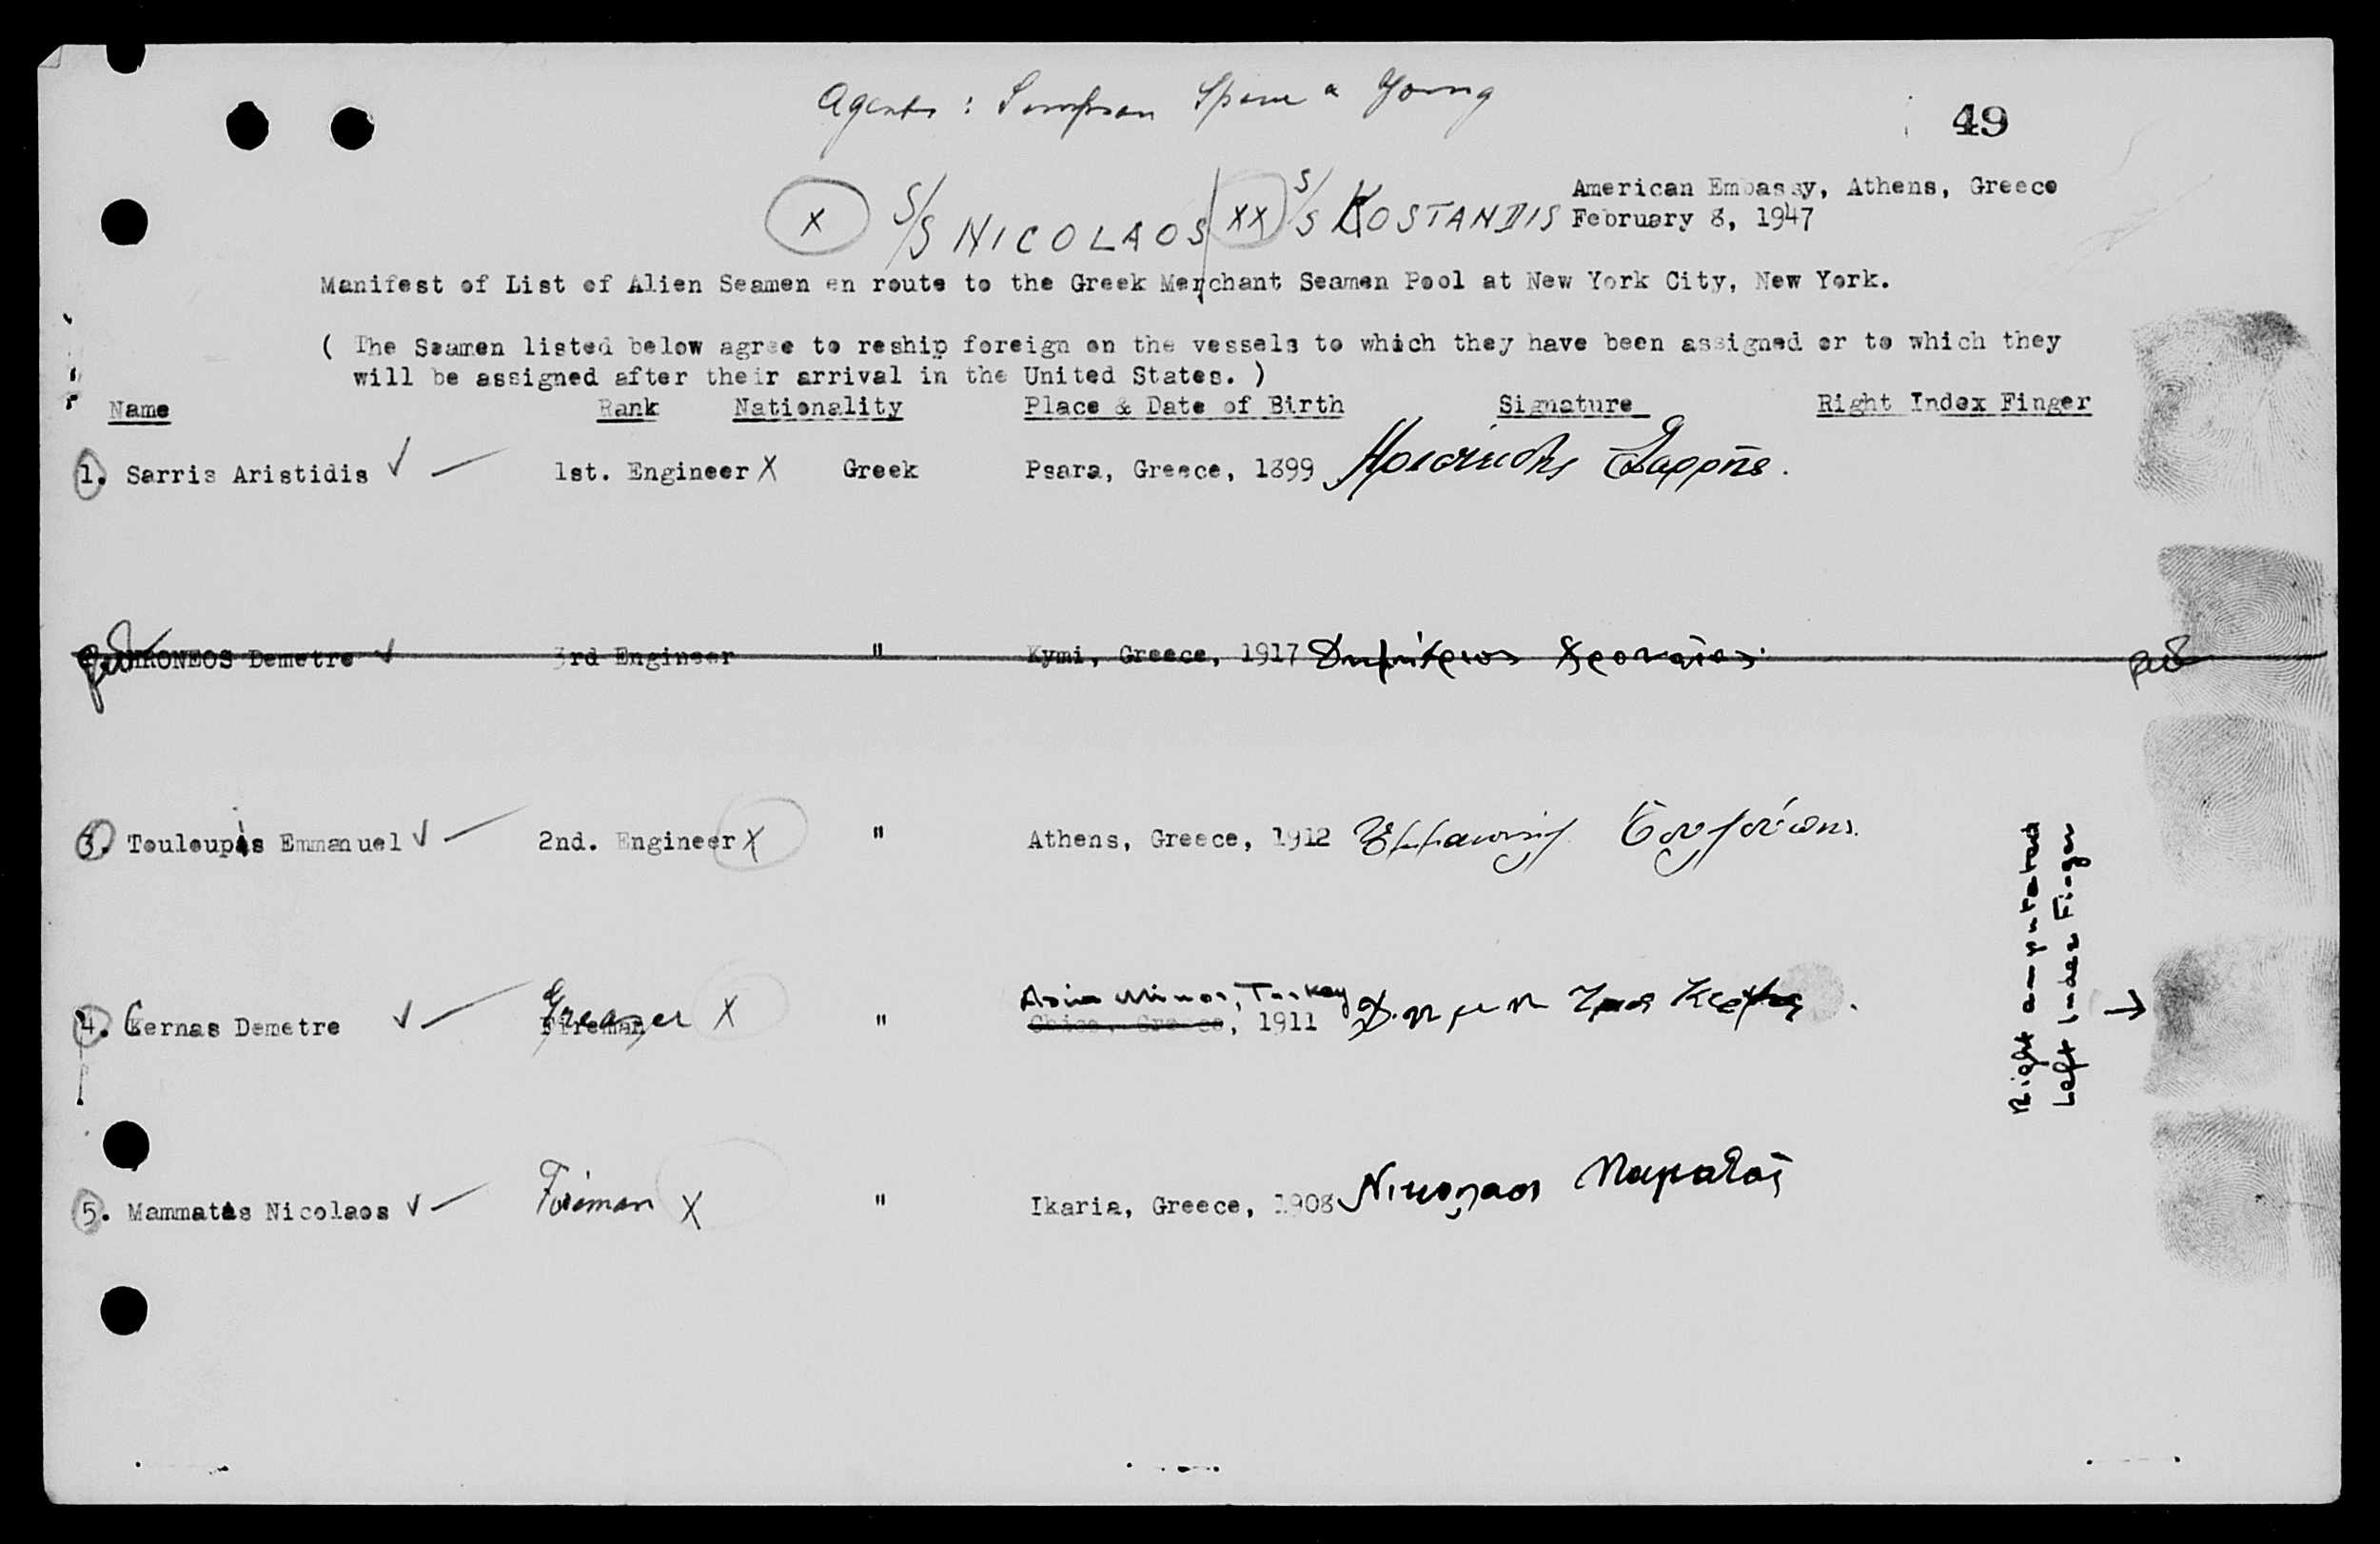 Agents : Simpson Spence & Young
49
American Embassy, Athens, Greece
X S/S NICOLAOS / XX S/S KOSTANDIS February 8, 1947
Manifest of List of Alien Seamen en route to the Greek Merchant Seamen Pool at New York City, New York.
( The Seamen listed below agree to reship foreign on the vessels to which they have been assigned or to which they
will be assigned after their arrival in the United States. )
Name Rank Nationality Place & Date of Birth Signature Right Index Finger
1. Sarris Aristidis ✓ 1st. Engineer X Greek Psara, Greece, 1899 Αριστείδης Σαρρής.
CHRONEOS Demetre ✓ 3rd Engineer " Kymi, Greece, 1917 Δημήτριος Χροναίος
3. Touloupis Emmanuel ✓ 2nd. Engineer X " Athens, Greece, 1912 Εμμανουήλ
Asia Minor, Turkey
4. Cernas Demetre ✓ Fireman Greaser X " Chios, Greece, 1911
Right amputated
Left Index Finger →
5. Mammatas Nicolaos ✓ Fireman X " Ikaria, Greece, 1908 Νικολαος Μαματας